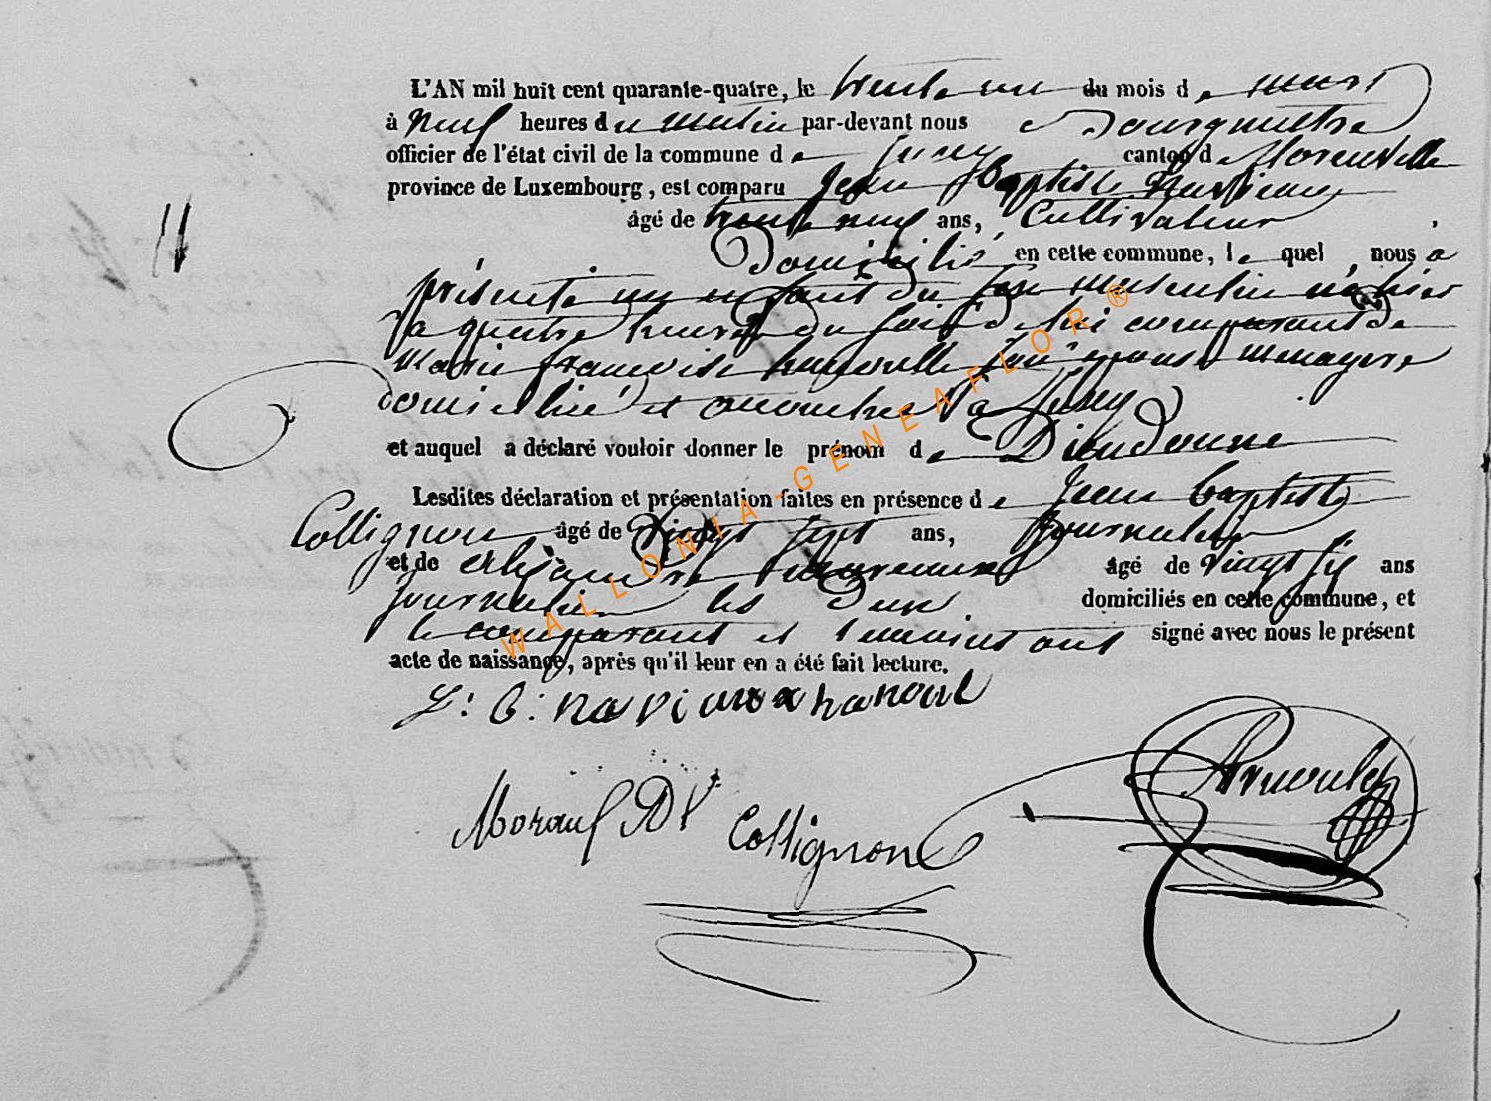 L'AN mil huit cent quarante-quatre, le trente un du mois de mars
à neuf heures du matin par-devant nous Bourgmestre
officier de l'état civil de la commune de canton de florenville
province de Luxembourg, est comparu Jean Baptiste
âgé de trente neuf ans, Cultivateur
Domicilié en cette commune, le quel nous a
présenté un enfant du sexe masculin né hier
a quatre heures du soir de lui comparant de
Marie françoise son épouse menagere
domiciliée et
et auquel a déclaré vouloir donner le prénom de Dieudonne
Lesdites déclaration et présentation faites en présence de Jean baptiste
Collignon âgé de vingt sept ans, Journalier
et de alexandre âgé de vingt six ans
journalier les Deux domiciliés en cette commune, et
le comparant et temoins ont signé avec nous le présent
acte de naissance, après qu'il leur en a été fait lecture.
J: B: naviaux hanoul
Collignon
WALLONIA-GENEAFLOR®
11